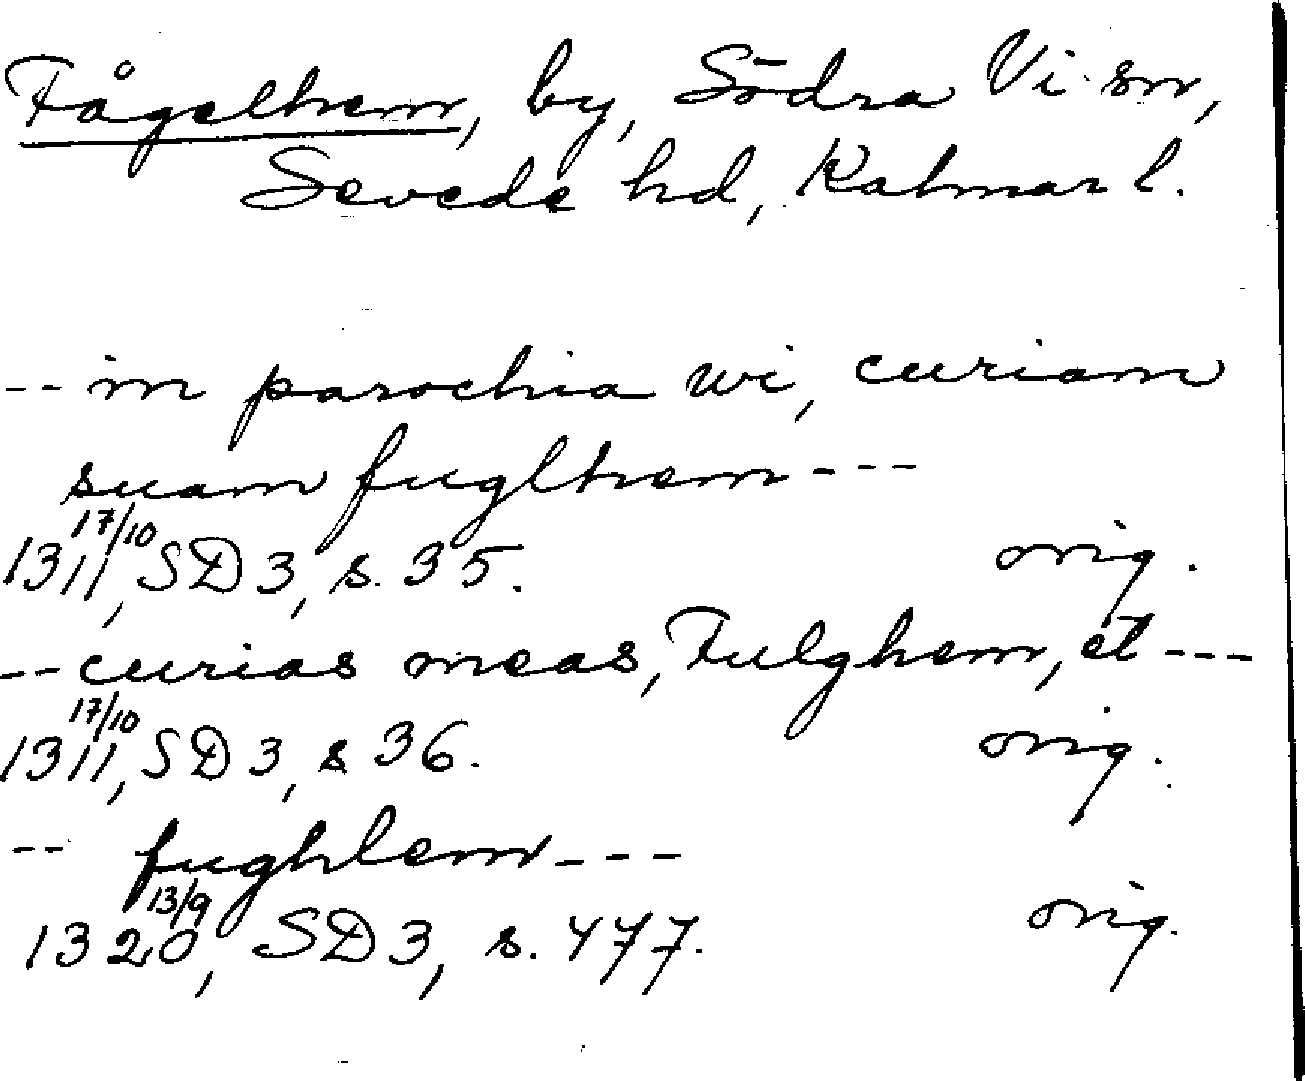 Fågelhem, by, Södra Vi sn,
Sevede hd, Kalmar l.
-- in parochia wi, curiam
suam fuglhem ---
1311 17/10, SD 3, s. 35. orig.
-- curias meas, Fulghem, et ---
1311 17/10, SD 3, s 36. orig.
-- fughlem ---
1320 13/9, SD 3, s. 477. orig.